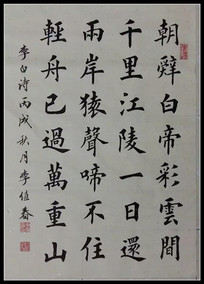 朝辭白帝彩雲間
千里江陵一日還
兩岸猿聲啼不住
輕舟已過萬重山
李白诗丙戌秋月李值春